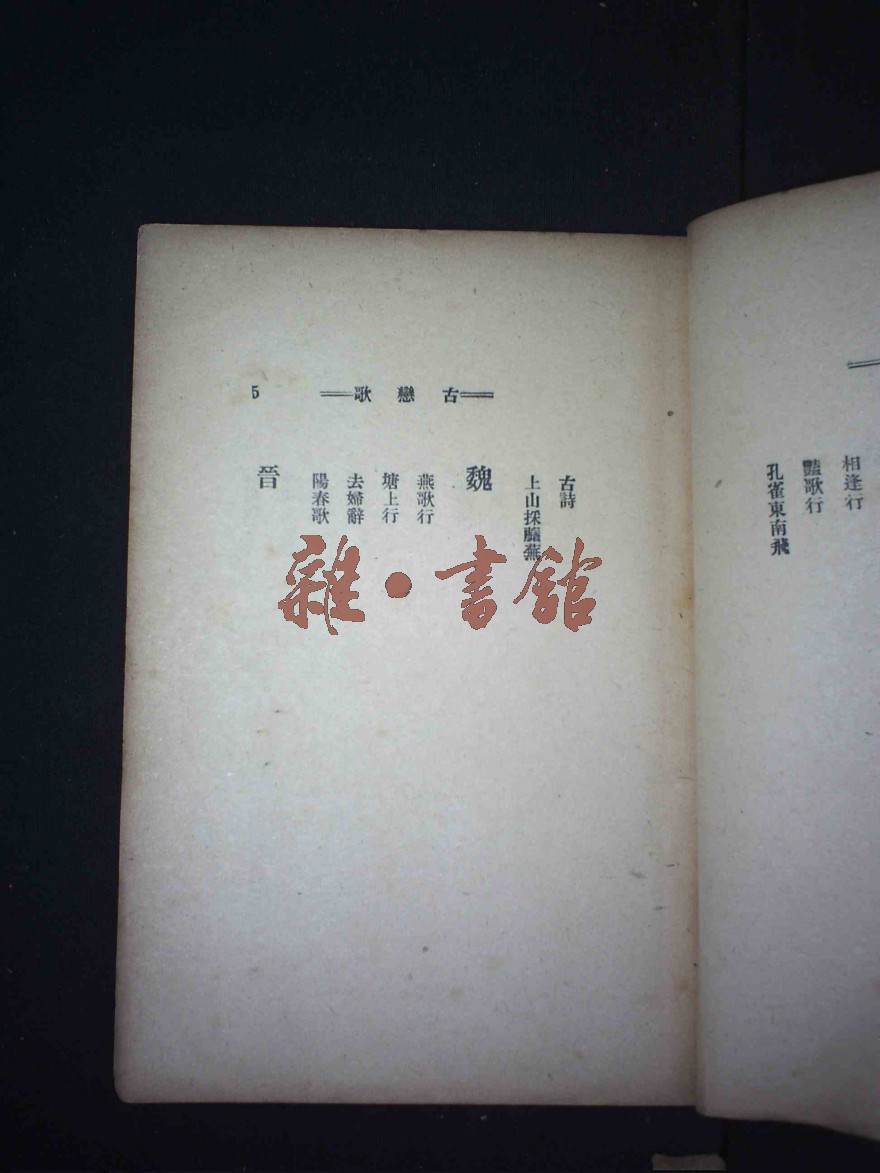 相逢行
豔歌行
孔雀東南飛
5 ==歌戀古==
古詩
上山採蘼蕪
魏
燕歌行
塘上行
去婦辭
陽春歌
晉
雜·書館